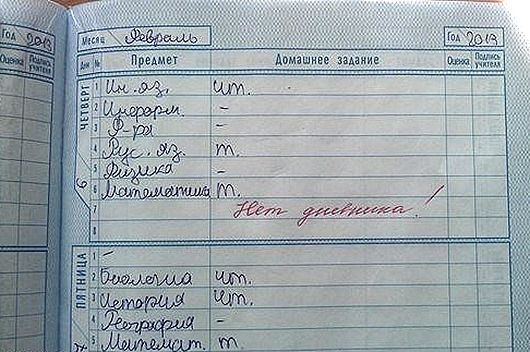 Год 2013
Оценка Подпись учителя
Месяц Февраль Год 2013
Дни № Предмет Домашнее задание Оценка Подпись учителя
ЧЕТВЕРГ
1 Ин. яз. чт.
2 Информ. -
3 Ф-ра -
4 Рус. яз. т.
5 Физика -
6 Математика т.
7 Нет дневника!
8
6
ПЯТНИЦА
1 -
2 Биология чт.
3 История чт.
4 География -
5 Математ. т.